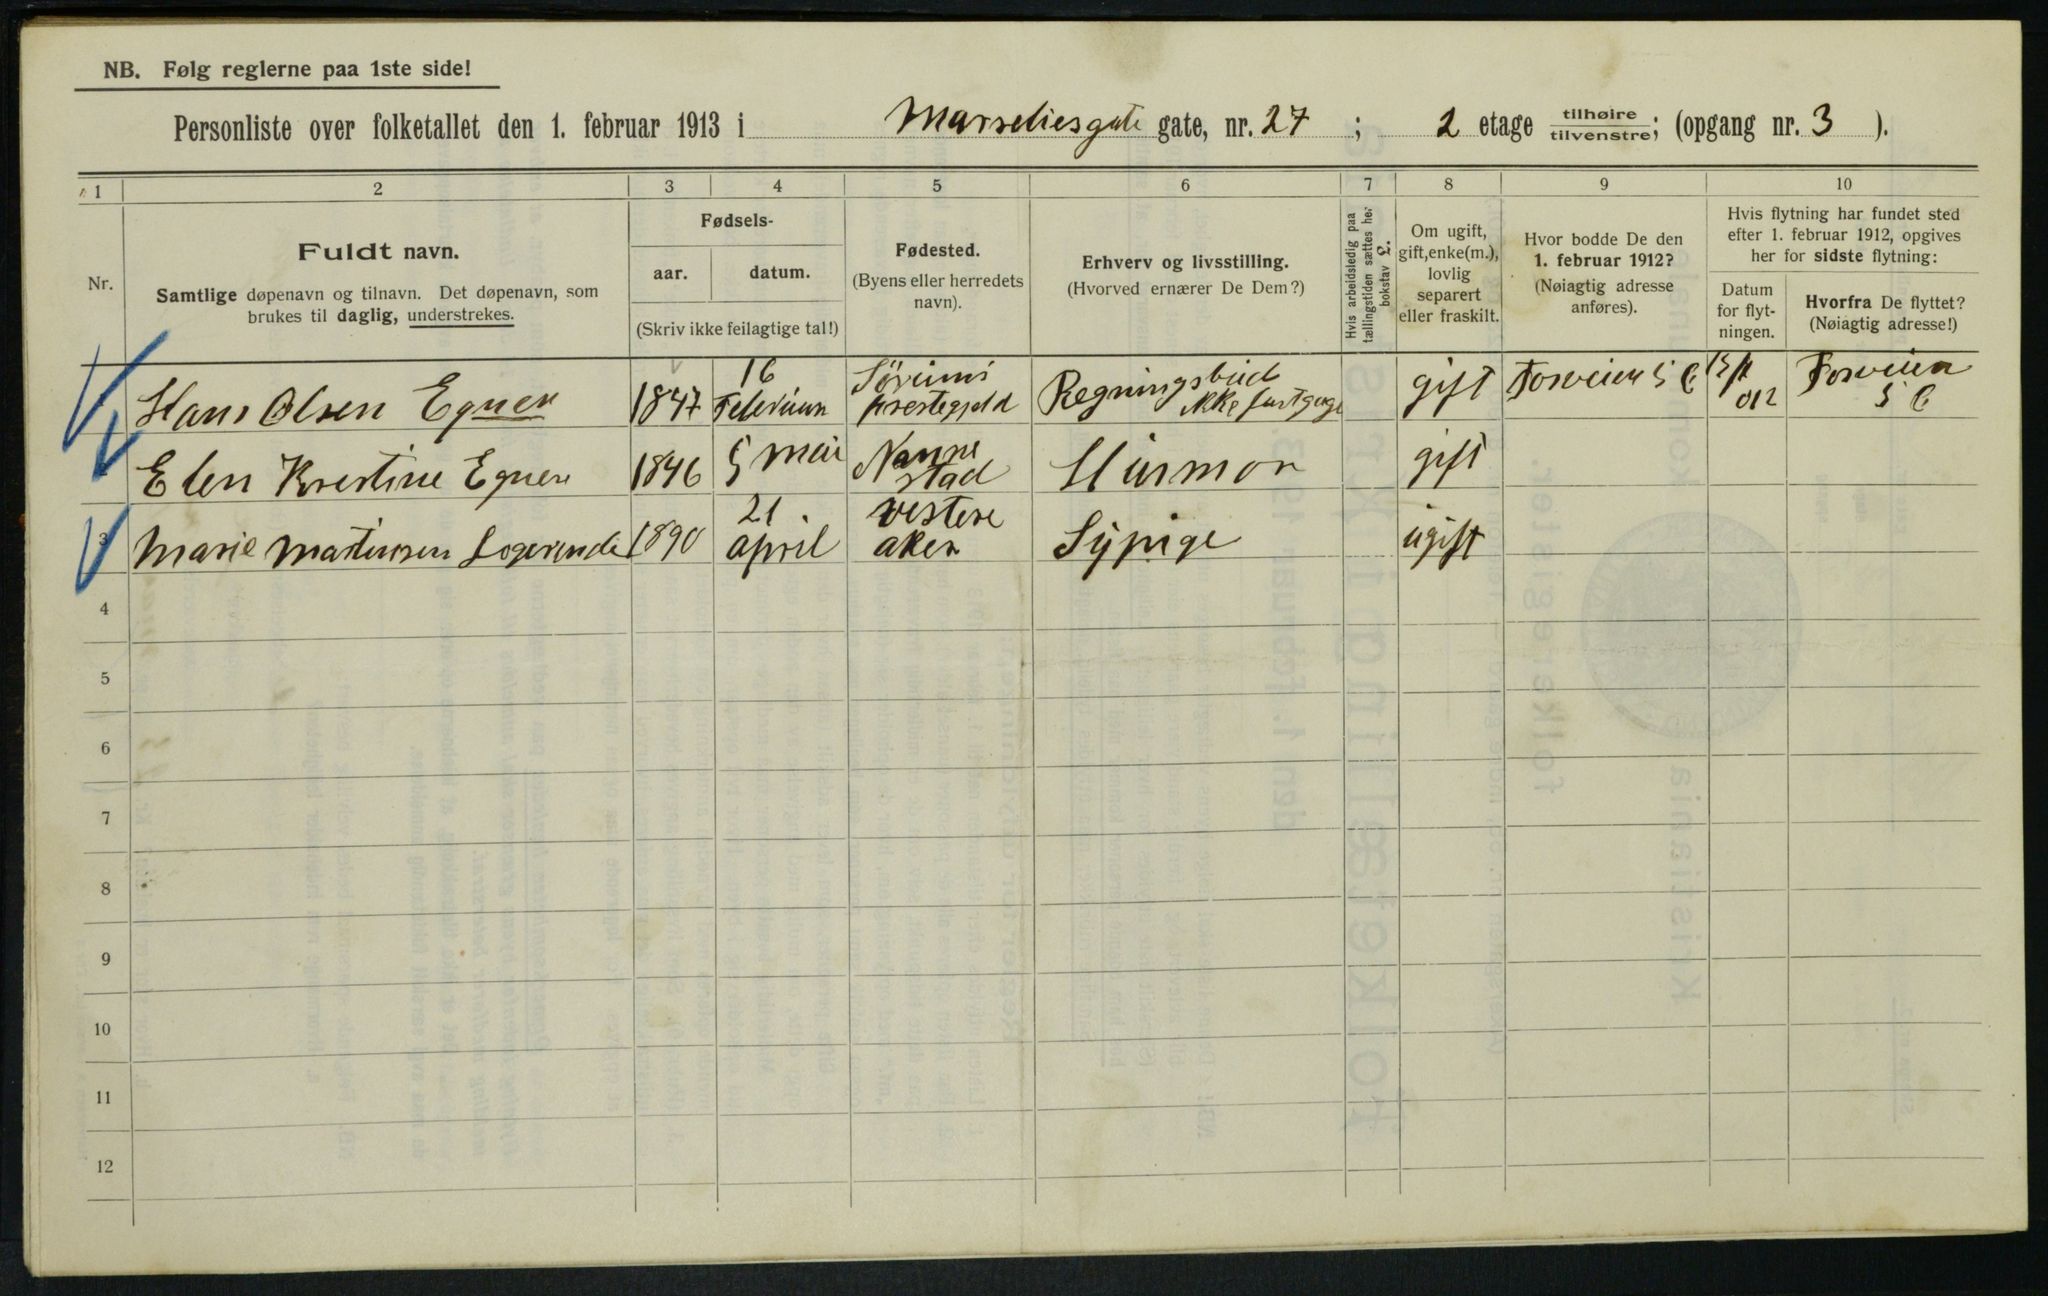 NB. Følg reglerne paa 1ste side!
Personliste over folketallet den 1. februar 1913 i Marseliesgate gate, nr. 27 ; 2 etage tilhøire tilvenstre; (opgang nr. 3 ).
1 2 3 4 5 6 7 8 9 10
Nr.
Fuldt navn.
Samtlige døpenavn og tilnavn. Det døpenavn, som
brukes til daglig, understrekes.
Fødsels-
aar. datum.
(Skriv ikke feilagtige tal!)
Fødested.
(Byens eller herredets
navn).
Erhverv og livsstilling.
(Hvorved ernærer De Dem?)
Hvis arbeidsledig paa
tællingstiden sættes her
bokstav L.
Om ugift,
gift, enke(m.),
lovlig
separert
eller fraskilt.
Hvor bodde De den
1. februar 1912?
(Nøiagtig adresse
anføres).
Hvis flytning har fundet sted
efter 1. februar 1912, opgives
her for sidste flytning:
Datum
for flyt-
ningen.
Hvorfra De flyttet?
(Nøiagtig adresse!)
Hans Olsen Egner 1847 16 Februar Sørums prestegjeld Regningsbud ikke fastgage gift Fosveien 5 C 012 Fosveien 5 C
2 Elen Krestine Egner 1846 5 Mai Nannestad Husmor gift
3 Marie Martinsen Logerende 1890 21. april vestere aker Sypige ugift
4
5
6
7
8
9
10
11
12